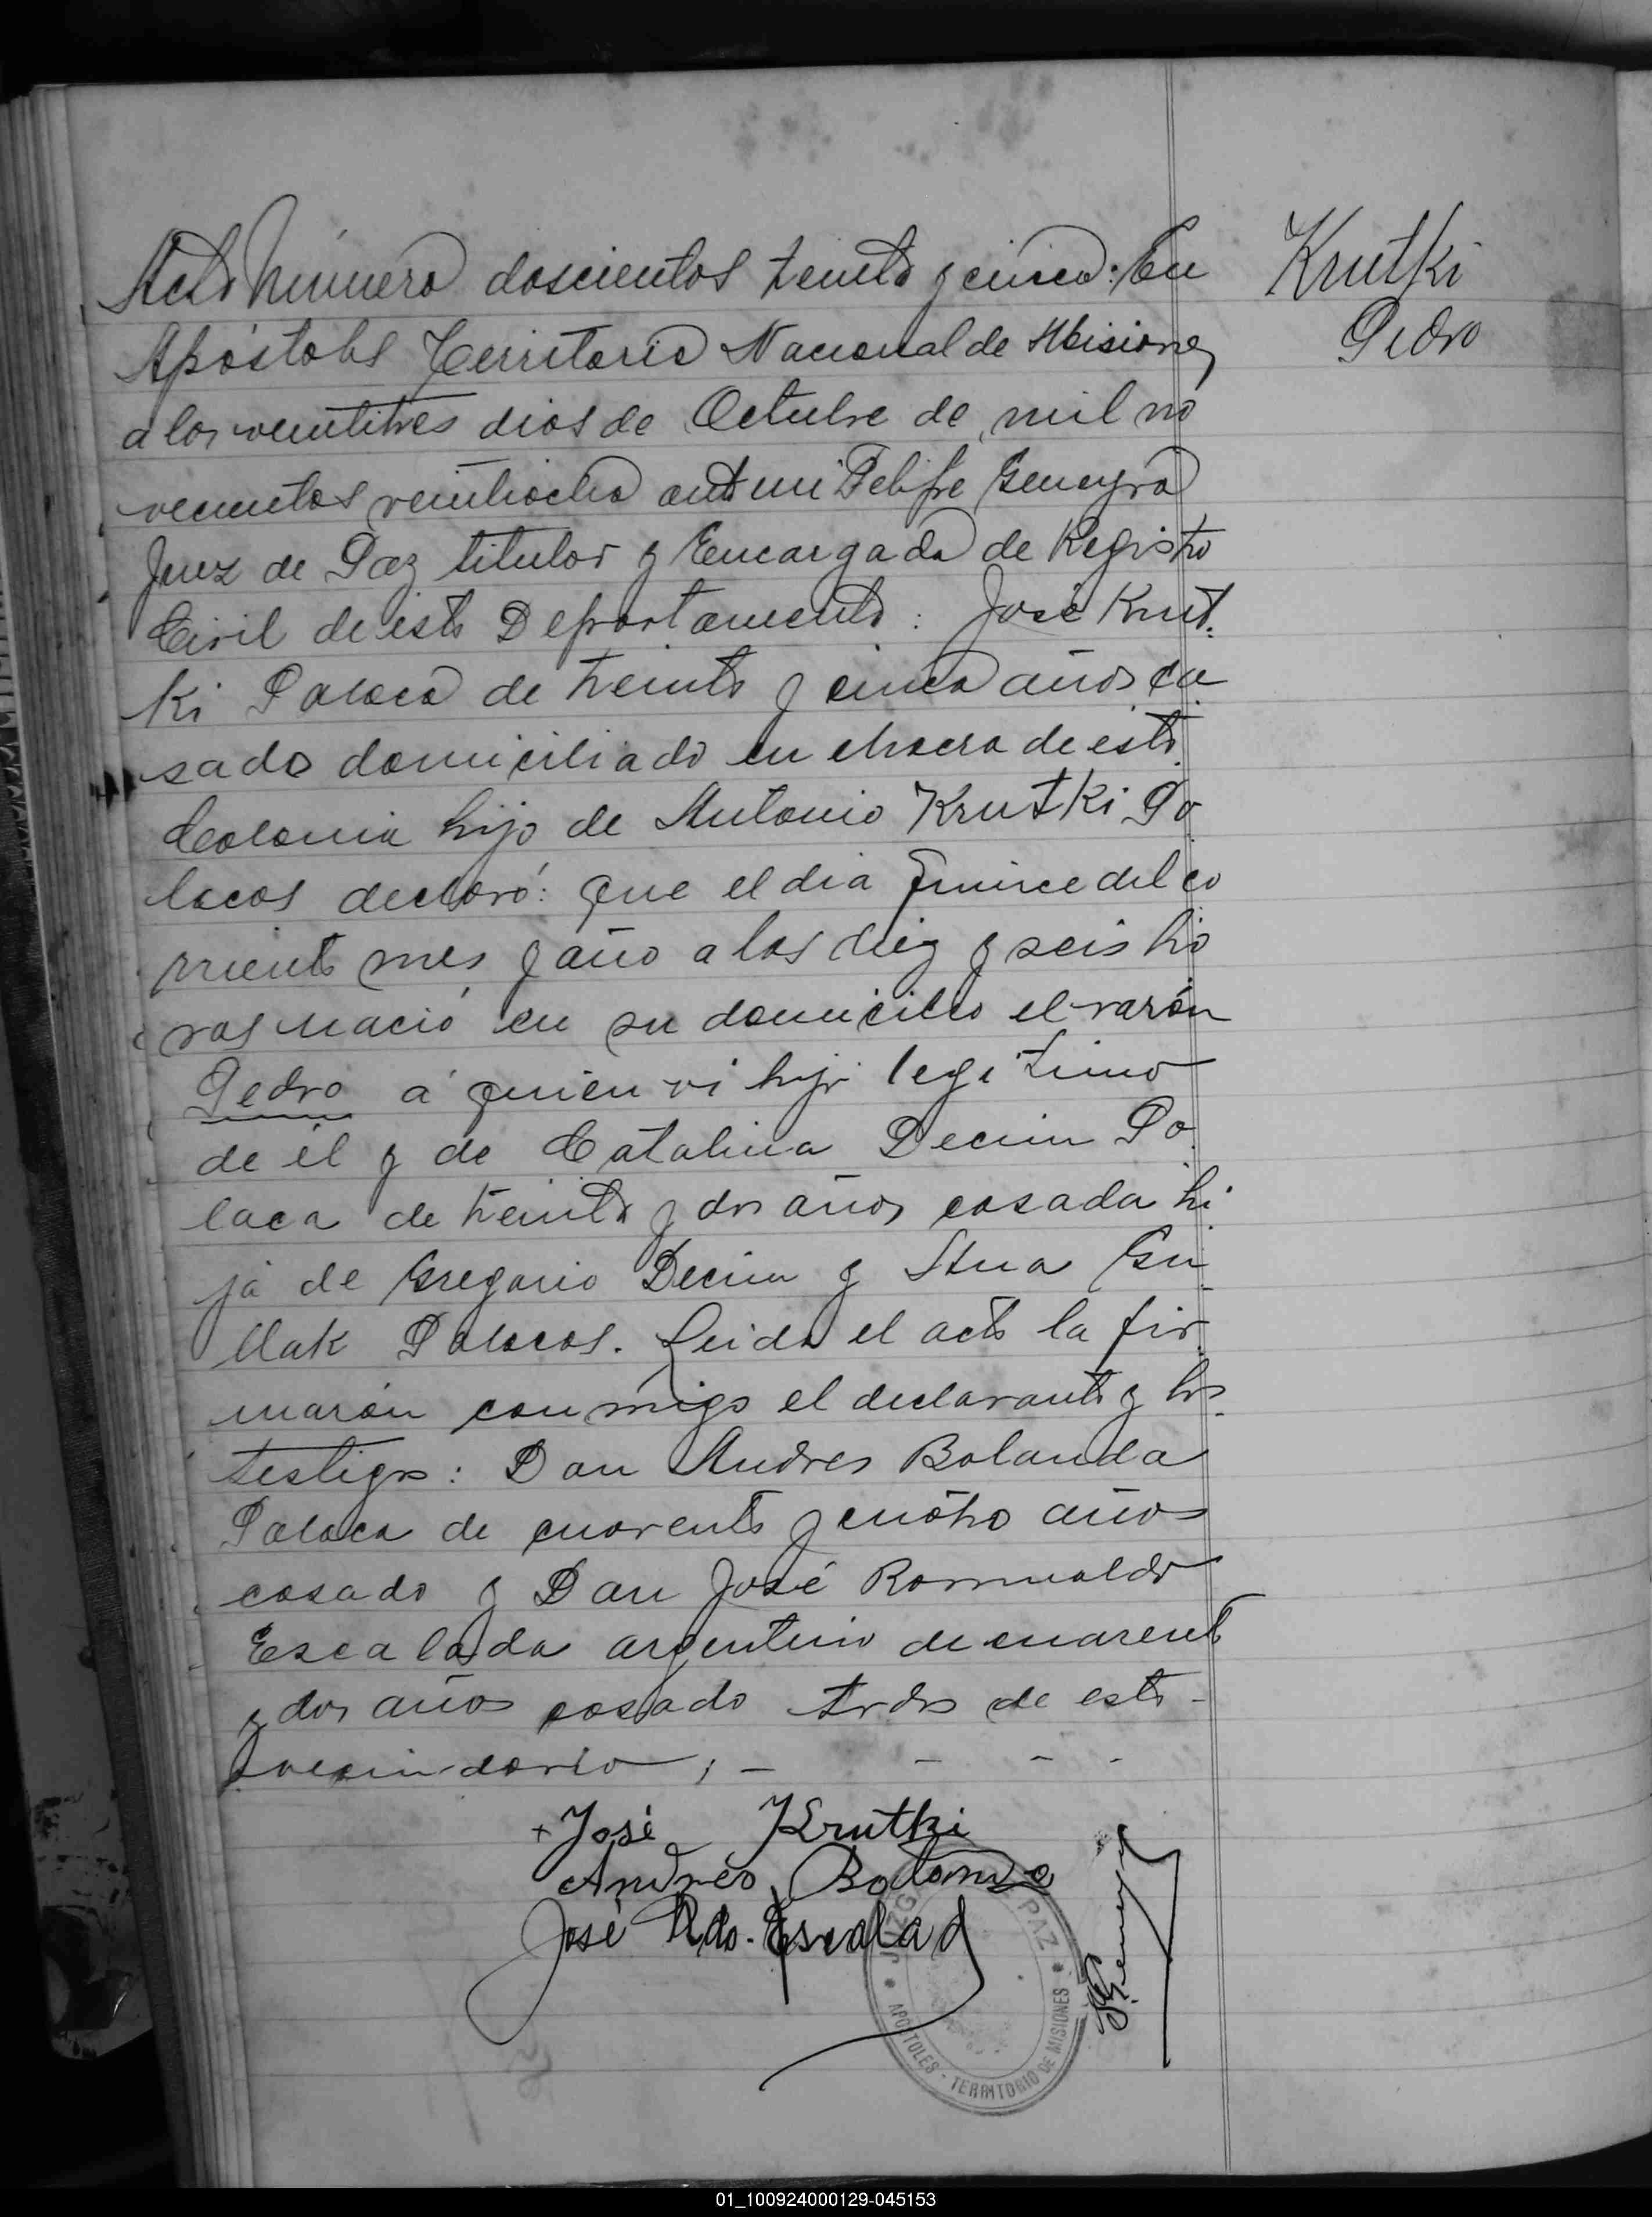 Acta Número doscientos treinta y cinco: En
Krutki
Pedro
Apóstoles Territorio Nacional de Misiones
a los veintitres dias de Octubre de mil no
vecientos veintiocho ante mi Felipe Geneyro
Juez de Paz titular y Encargado de Registro
Civil de este Departamento: José Krut-
ki Polaco de treinta y cinco años ca
sado domiciliado en chacra de esta
Colonia hijo de Antonio Krutki Po
lacos declaró: Que el dia quince del co
rriente mes y año a las diez y seis ho
ras nació en su domicilio el varón
Pedro á quien vi hijo legitimo
de él y de Catalina Decim Po
laca de treinta y dos años casada hi
ja de Gregorio Decim y Ana Gu
llak Polacos. Leida el acta la fir
marón conmigo el declarante y los
testigos: Don Andres Bolanda
Polaca de cuarenta y cuatro años
casado y Don José Romualdo
Escalada argentino de cuarenta
y dos años casado todos de este -
vecindario; - - - -
+ José Krutki
Andrés Bolanda
José Rdo. Escalad
FGeneyro
JUZG PAZ
APOSTOLES - TERRITORIO DE MISIONES
01_100924000129-045153